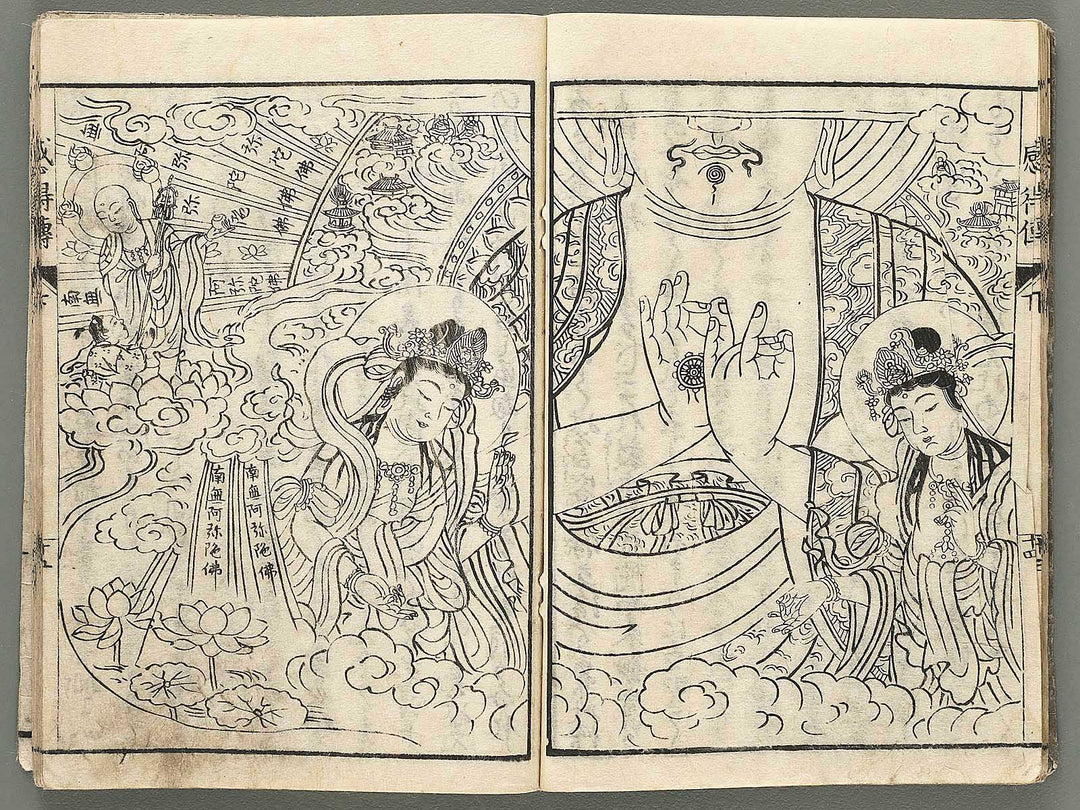 感得傳
十四
南無阿弥陀佛
南無阿弥陀佛
弥陀佛
弥陀佛
弥佛
南無
阿弥陀佛
無
感得傳
十五